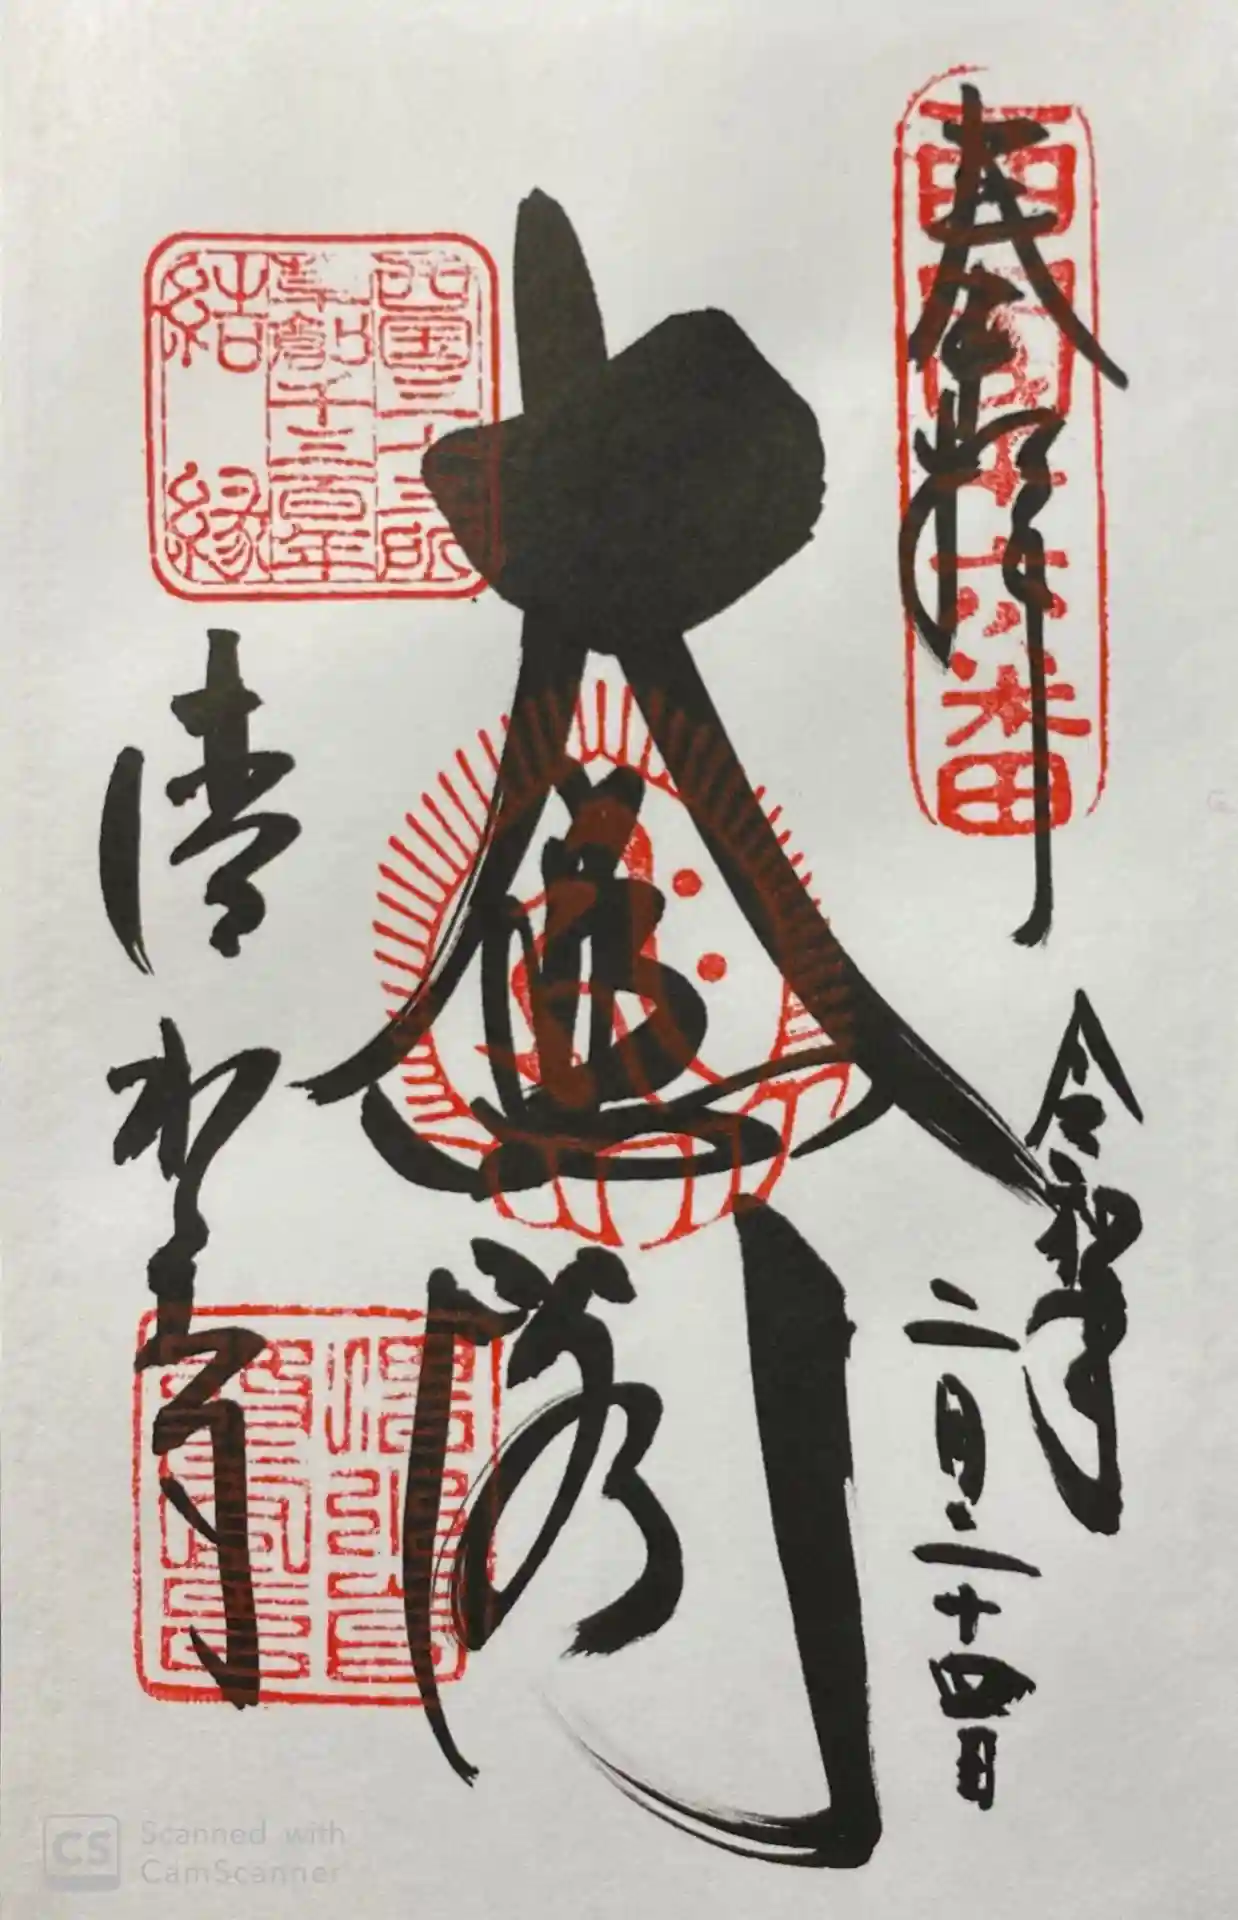 奉拝
西国第十六番
令和
二月二十四日
大悲閣
西国三十三所
草創千三百年
結縁
清水寺
Scanned with
CamScanner
CS